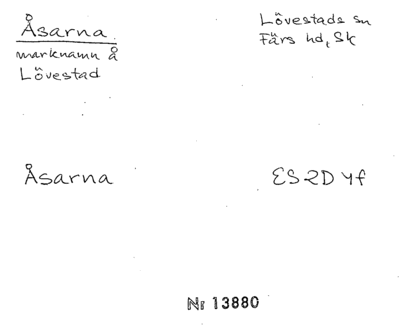 Åsarna.
marknamn å
Lövestad
Lövestads sn
Färs hd, Sk
Åsarna
ES2D4f
Nr 13880